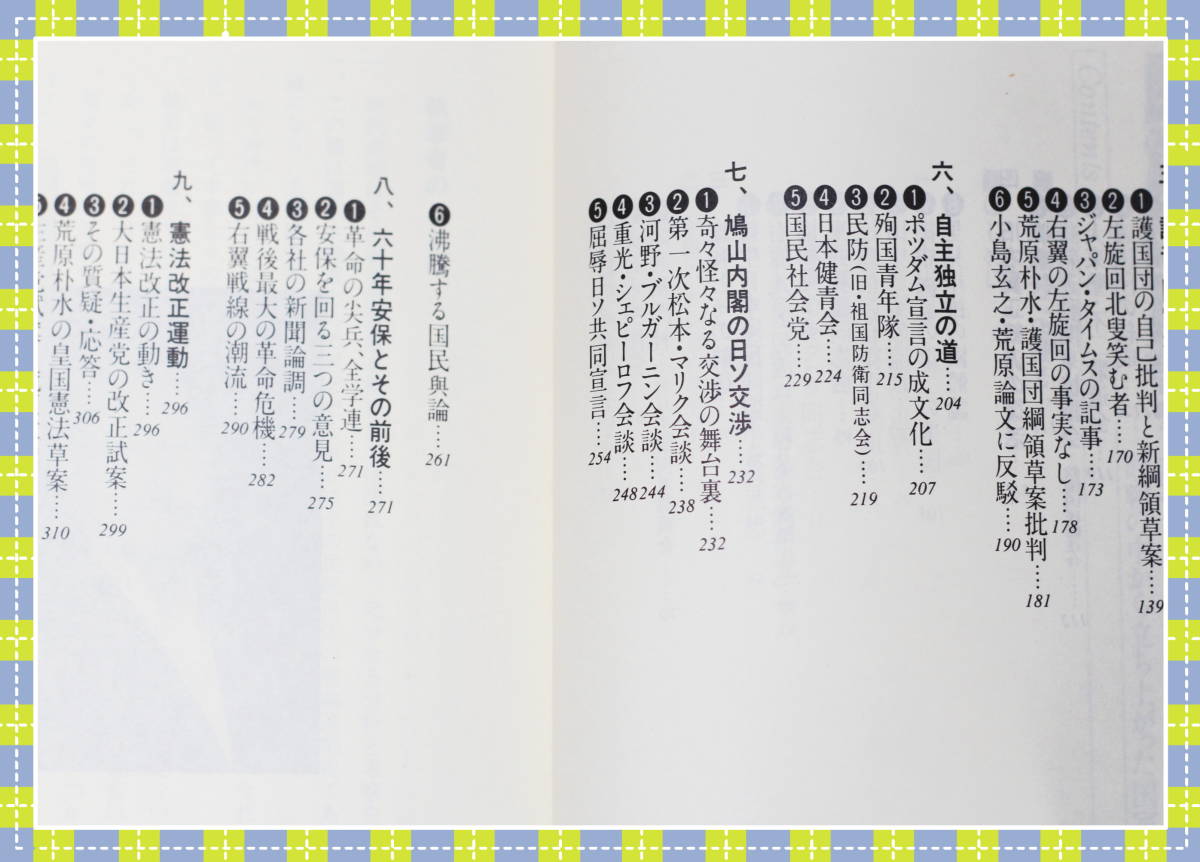 ❶護国団の自己批判と新綱領草案……139
❷左旋回北叟笑む者……170
❸ジャパン・タイムスの記事……173
❹右翼の左旋回の事実なし……178
❺荒原朴水・護国団綱領草案批判……181
❻小島玄之・荒原論文に反駁……190
六、自主独立の道……204
❶ポツダム宣言の成文化……207
❷殉国青年隊……215
❸民防(旧・祖国防衛同志会)……219
❹日本健青会……224
❺国民社会党……229
七、鳩山内閣の日ソ交渉……232
❶奇々怪々なる交渉の舞台裏……232
❷第一次松本・マリク会談……238
❸河野・ブルガーニン会談……244
❹重光・シェピーロフ会談……248
❺屈辱日ソ共同宣言……254
❻沸騰する国民與論……261
八、六十年安保とその前後……271
❶革命の尖兵、全学連……271
❷安保を回る三つの意見……275
❸各社の新聞論調……279
❹戦後最大の革命危機……282
❺右翼戦線の潮流……290
九、憲法改正運動……296
❶憲法改正の動き……296
❷大日本生産党の改正試案……299
❸その質疑・応答……306
❹荒原朴水の皇国憲法草案……310